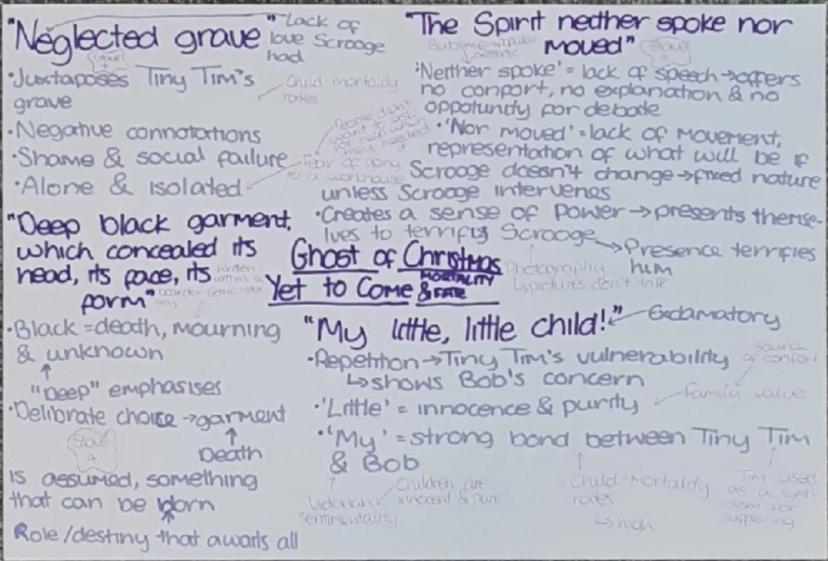 "Neglected grave"
Lack of
love Scrooge
had
Stave
4
•Juxtaposes Tiny Tim's
grave
Child mortality
rates
•Negative connotations
•Shame & social failure
Fear of going
to a workhouse
•Alone & isolated
"The Spirit neither spoke nor
moved"
Stave
4
•'Neither spoke' = lack of speech→offers
no comfort, no explanation & no
oppotunity for debate
•'Nor moved' = lack of movement,
representation of what will be if
Scrooge doesn't change→fixed nature
unless Scrooge intervenes
•Creates a sense of power→presents themse-
lves to terrify Scrooge
Presence terrifies
him
Photography
↳pictures don't talk
"Deep black garment,
which concealed its
head, its face, its
form"
written
within a
•Black = death, mourning
& unknown
"Deep" emphasises
•Delibrate choice→garment
Stave
4
Death
is assumed, something
that can be worn
Role/destiny that awaits all
Ghost of Christmas
Yet to Come & MORTALITY
FATE
"My little, little child!"
Exclamatory
•Repetition→Tiny Tim's vulnerability
↳shows Bob's concern
source
of comfort
Family values
•'Little' = innocence & purity
•'My' = strong bond between Tiny Tim
& Bob
Victorian
sentimentality
Children are
innocent & pure
Child-mortality
rates
↳high
Tim used
as a symb-
olism for
suffering